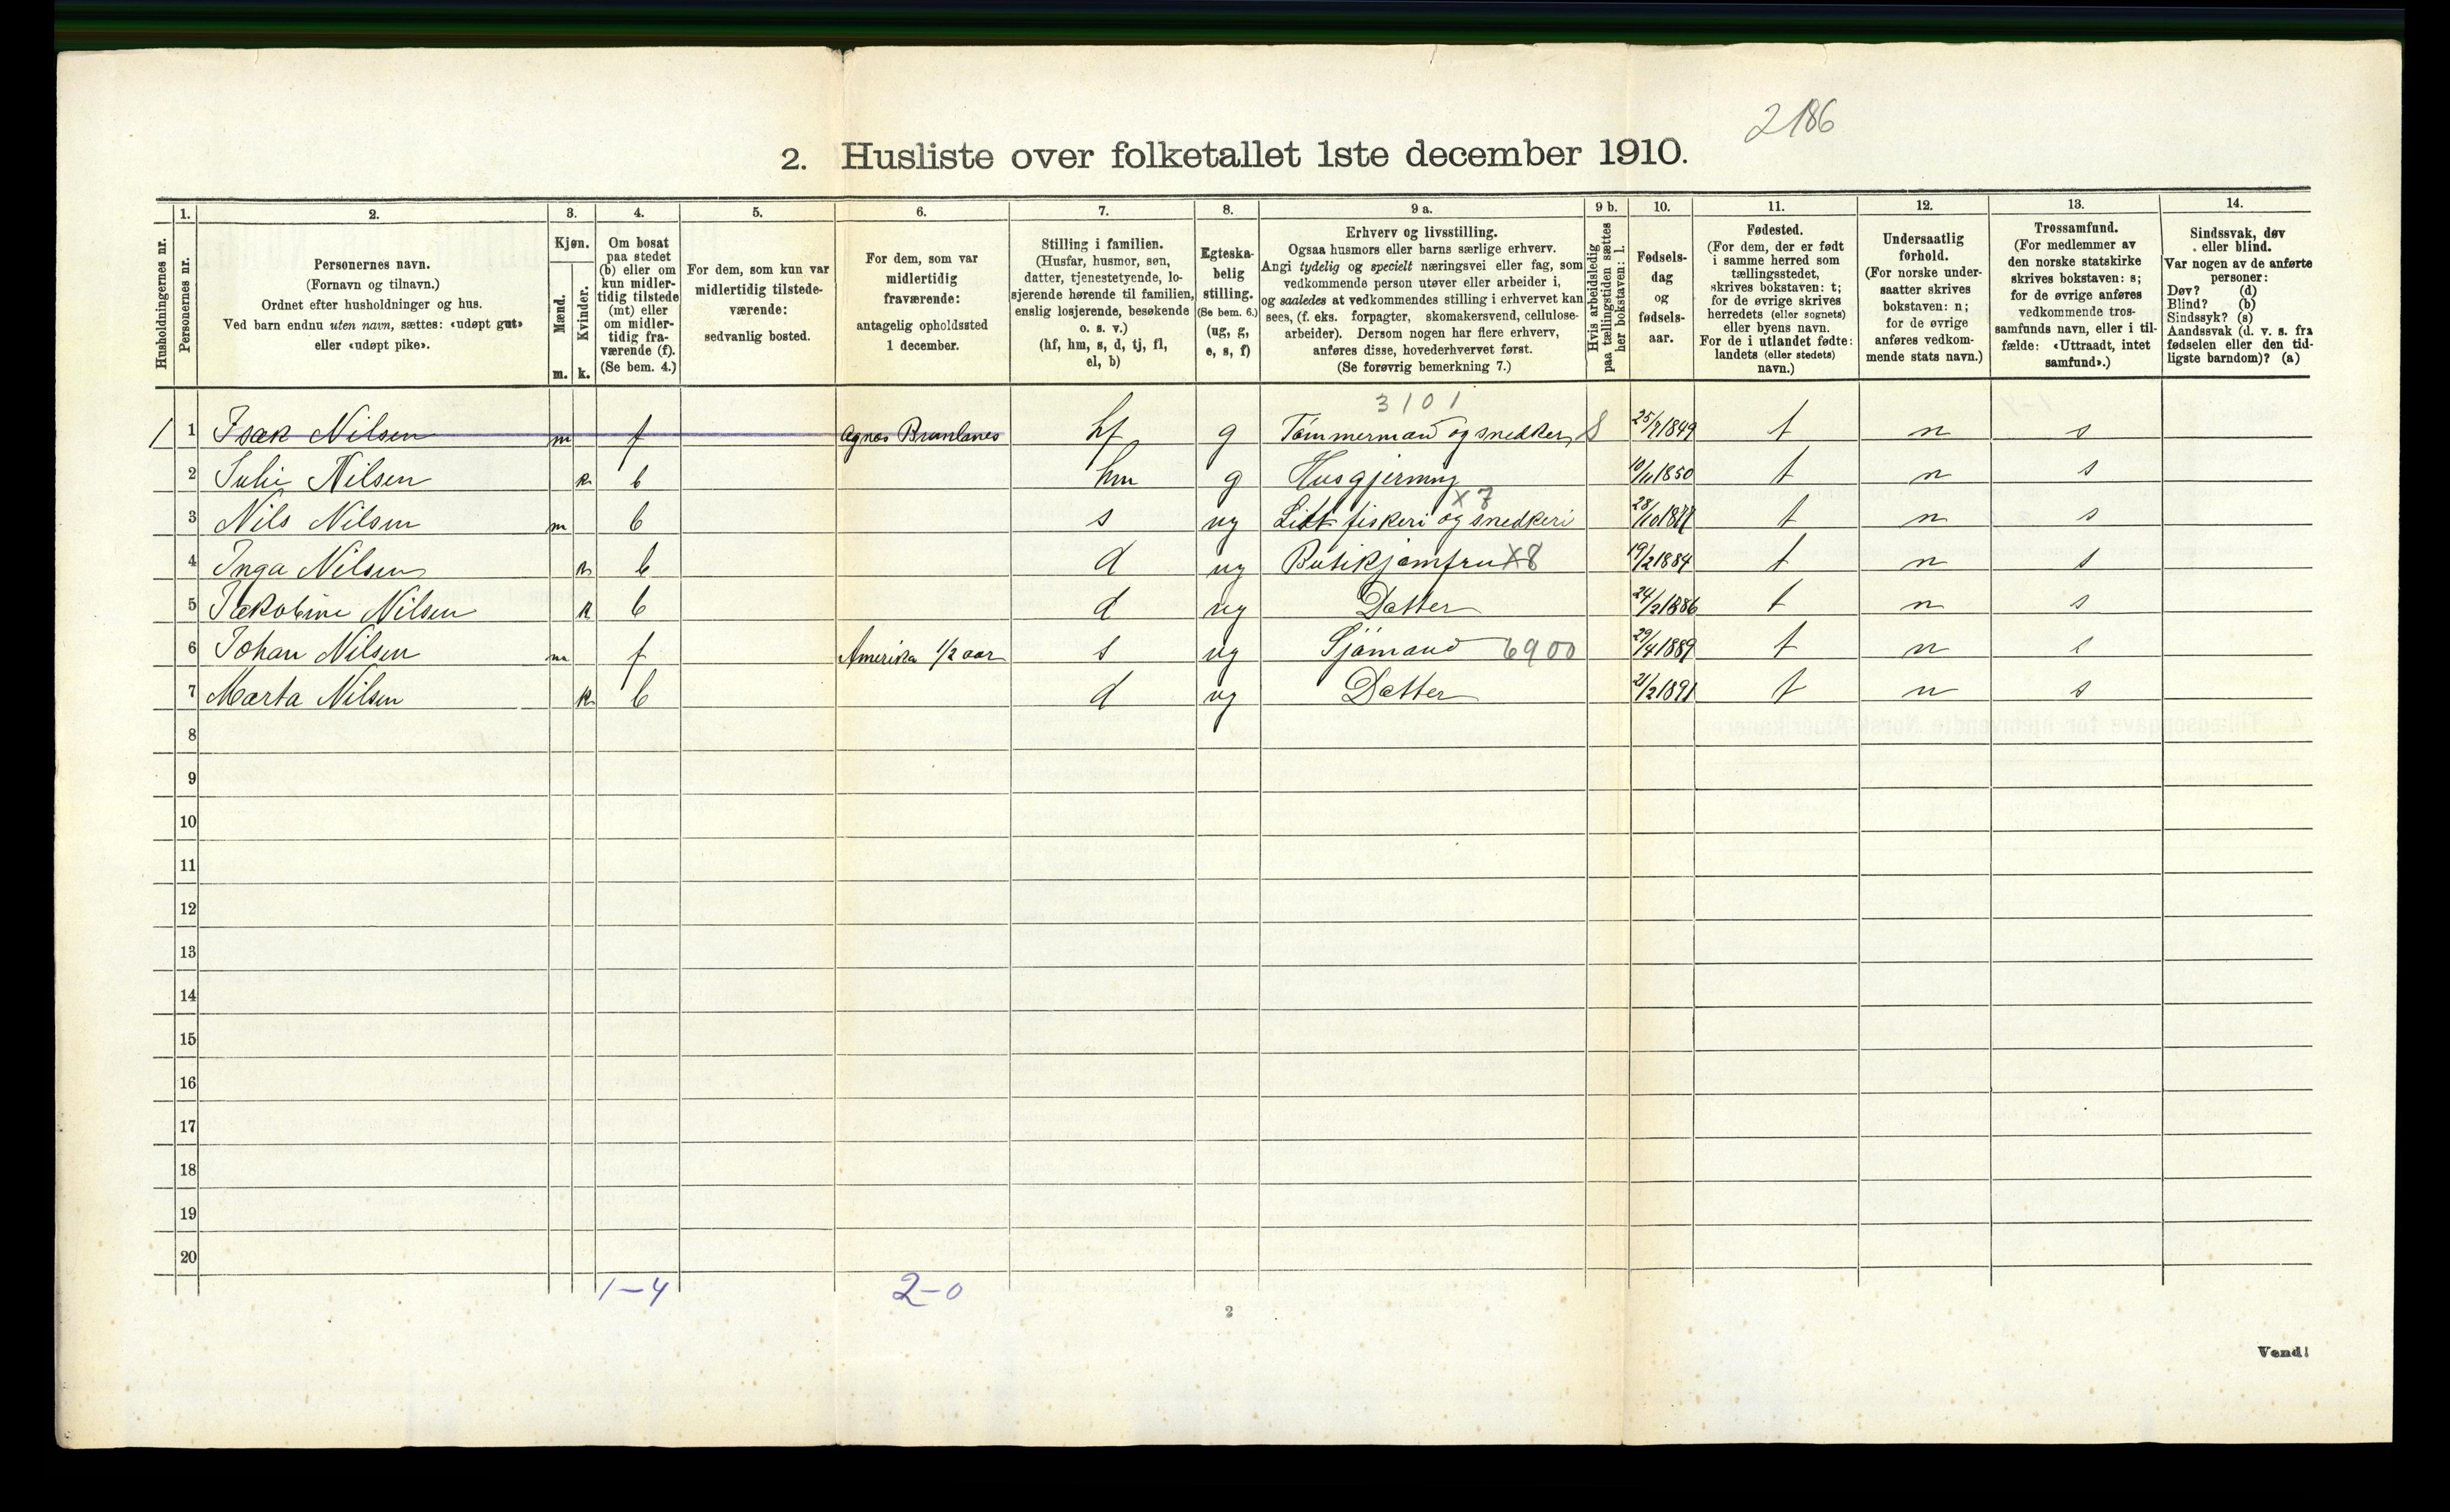 2186
2. Husliste over folketallet 1ste december 1910.
Husholdningernes nr.
1. Personernes nr.
2. Personernes navn.
(Fornavn og tilnavn.)
Ordnet efter husholdninger og hus.
Ved barn endnu uten navn, sættes: «udøpt gut»
eller «udøpt pike».
3. Kjøn.
Mænd. m.
Kvinder. k.
4. Om bosat
paa stedet
(b) eller om
kun midler-
tidig tilstede
(mt) eller
om midler-
tidig fra-
værende (f).
(Se bem. 4.)
5. For dem, som kun var
midlertidig tilstede-
værende:
sedvanlig bosted.
6. For dem, som var
midlertidig
fraværende:
antagelig opholdssted
1 december.
7. Stilling i familien.
(Husfar, husmor, søn,
datter, tjenestetyende, lo-
sjerende hørende til familien,
enslig losjerende, besøkende
o. s. v.)
(hf, hm, s, d, tj, fl,
el, b)
8. Egteska-
belig
stilling.
(Se bem. 6.)
(ug, g,
e, s, f)
9 a. Erhverv og livsstilling.
Ogsaa husmors eller barns særlige erhverv.
Angi tydelig og specielt næringsvei eller fag, som
vedkommende person utøver eller arbeider i,
og saaledes at vedkommendes stilling i erhvervet kan
sees, (f. eks. forpagter, skomakersvend, cellulose-
arbeider). Dersom nogen har flere erhverv,
anføres disse, hovederhvervet først.
(Se forøvrig bemerkning 7.)
9 b. Hvis arbeidsledig
paa tællingstiden sættes
her bokstaven: l.
10. Fødsels-
dag
og
fødsels-
aar.
11. Fødested.
(For dem, der er født
i samme herred som
tællingsstedet,
skrives bokstaven: t;
for de øvrige skrives
herredets (eller sognets)
eller byens navn.
For de i utlandet fødte:
landets (eller stedets)
navn.)
12. Undersaatlig
forhold.
(For norske under-
saatter skrives
bokstaven: n;
for de øvrige
anføres vedkom-
mende stats navn.)
13. Trossamfund.
(For medlemmer av
den norske statskirke
skrives bokstaven: s;
for de øvrige anføres
vedkommende tros-
samfunds navn, eller i til-
fælde: «Uttraadt, intet
samfund».)
14. Sindssvak, døv
eller blind.
Var nogen av de anførte
personer:
Døv? (d)
Blind? (b)
Sindssyk? (s)
Aandssvak (d. v. s. fra
fødselen eller den tid-
ligste barndom)? (a)
3101
1 1 Isak Nilsen m f Agnos Brunlanes hf g Tømmermand og snedker 25/7 1849 t n s
2 Julie Nilsen k b hm g Husgjerning 10/11 1850 t n s
X7
3 Nils Nilsen m b s ug Litt fiskeri og snedkeri 28/10 1877 t n s
4 Inga Nilsen k b d ug Butikjomfru X8 19/2 1884 t n s
5 Jakobine Nilsen k b d ug Datter 24/2 1886 t n s
6 Johan Nilsen m f Amerika 1/2 aar s ug Sjømand 6900 29/4 1889 t n s
7 Marta Nilsen k b d ug Datter 21/2 1891 t n s
8
9
10
11
12
13
14
15
16
17
18
19
20
1-4 2-0
2
Vend!